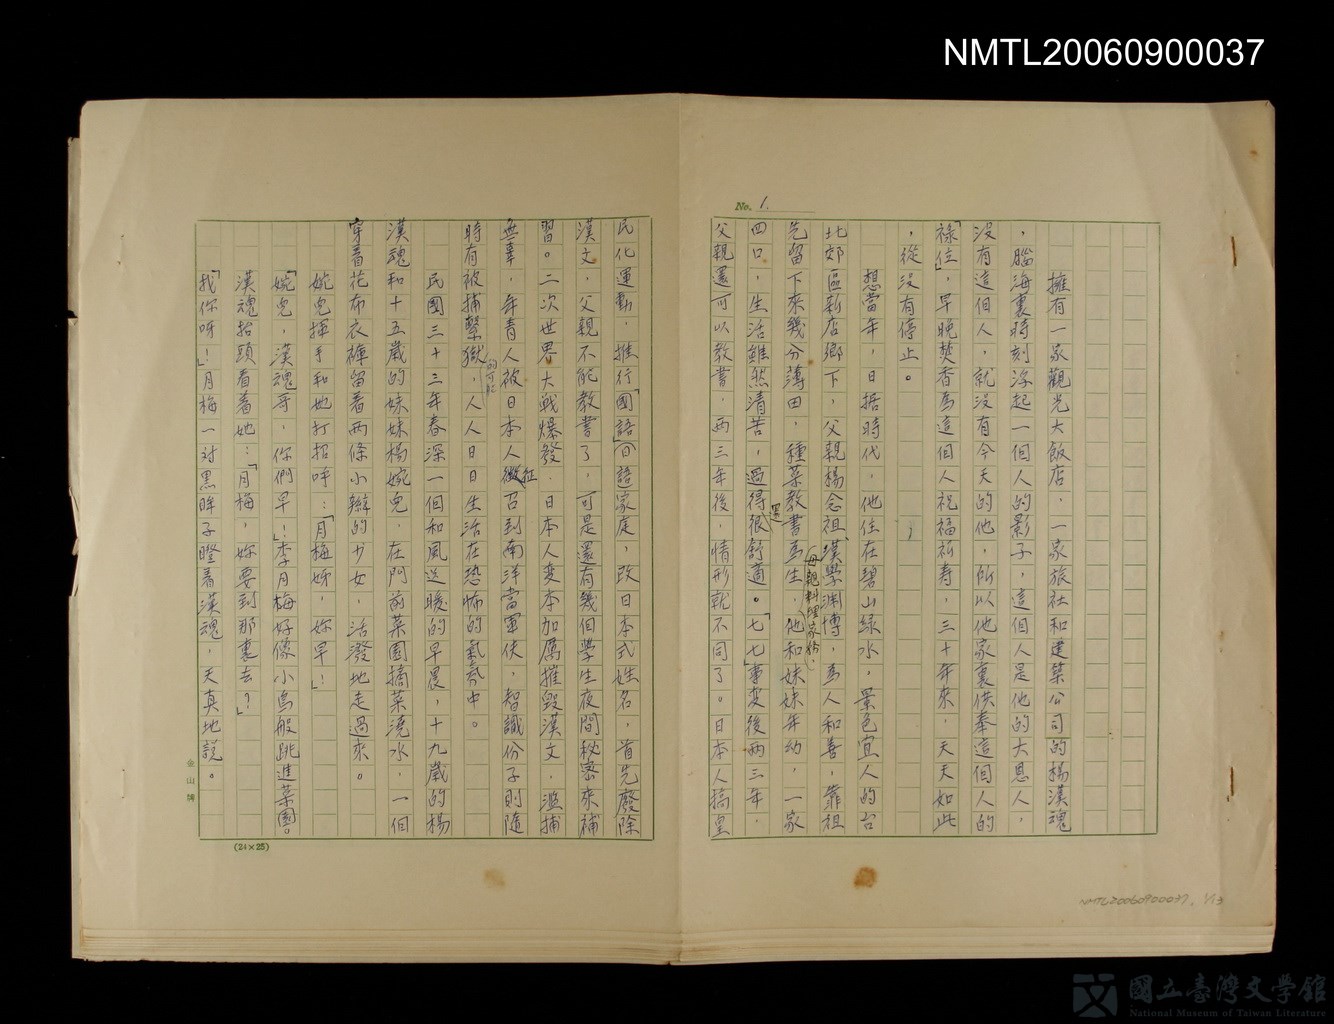 NMTL20060900037
No. 1.
擁有一家觀光大飯店，一家旅社和建築公司的楊漢魂
，腦海裏時刻浮起一個人的影子，這個人是他的大恩人，
沒有這個人，就沒有今天的他，所以他家裏供奉這個人的
「祿位」，早晚焚香為這個人祝福祈寿，三十年來，天天如此
，從沒有停止。
想當年，日据時代，他住在碧山綠水，景色宜人的台
北郊區新店鄉下，父親楊念祖，漢學渊博，為人和善，靠祖
先留下來幾分薄田，種菜教書為生，母親料理家務，他和妹妹年幼，一家
四口，生活雖然清苦，過得還很舒適。「七七」事変後兩三年，
父親還可以教書，兩三年後，情形就不同了。日本人搞皇
民化運動，推行「國語」（日語）家庭，改日本式姓名，首先廢除
漢文，父親不能教書了，可是還有幾個學生夜間秘密來補
習。二次世界大戦爆發，日本人変本加厲摧毀漢文，濫捕
無辜，年青人被日本人徵征召到南洋當軍伕，智識份子則隨
時有被捕繫獄的可能，人人日日生活在恐怖的氣氛中。
民國三十三年春深一個和風送暖的早晨，十九歲的楊
漢魂和十五歲的妹妹楊婉兒，在門前菜園摘菜澆水，一個
穿着花布衣褲留着两條小辮的少女，活潑地走過來。
婉兒揮手和她打招呼：「月梅姊，妳早！」
「婉兒，漢魂哥，你們早！」李月梅好像小鳥般跳進菜園。
漢魂抬頭看着她：「月梅，妳要到那裏去？」
「找你呀！」月梅一对黑眸子瞪着漢魂，天真地說。
金山牌
(24×25)
NMTL20060900037, 1/13
國立臺灣文學館
National Museum of Taiwan Literature